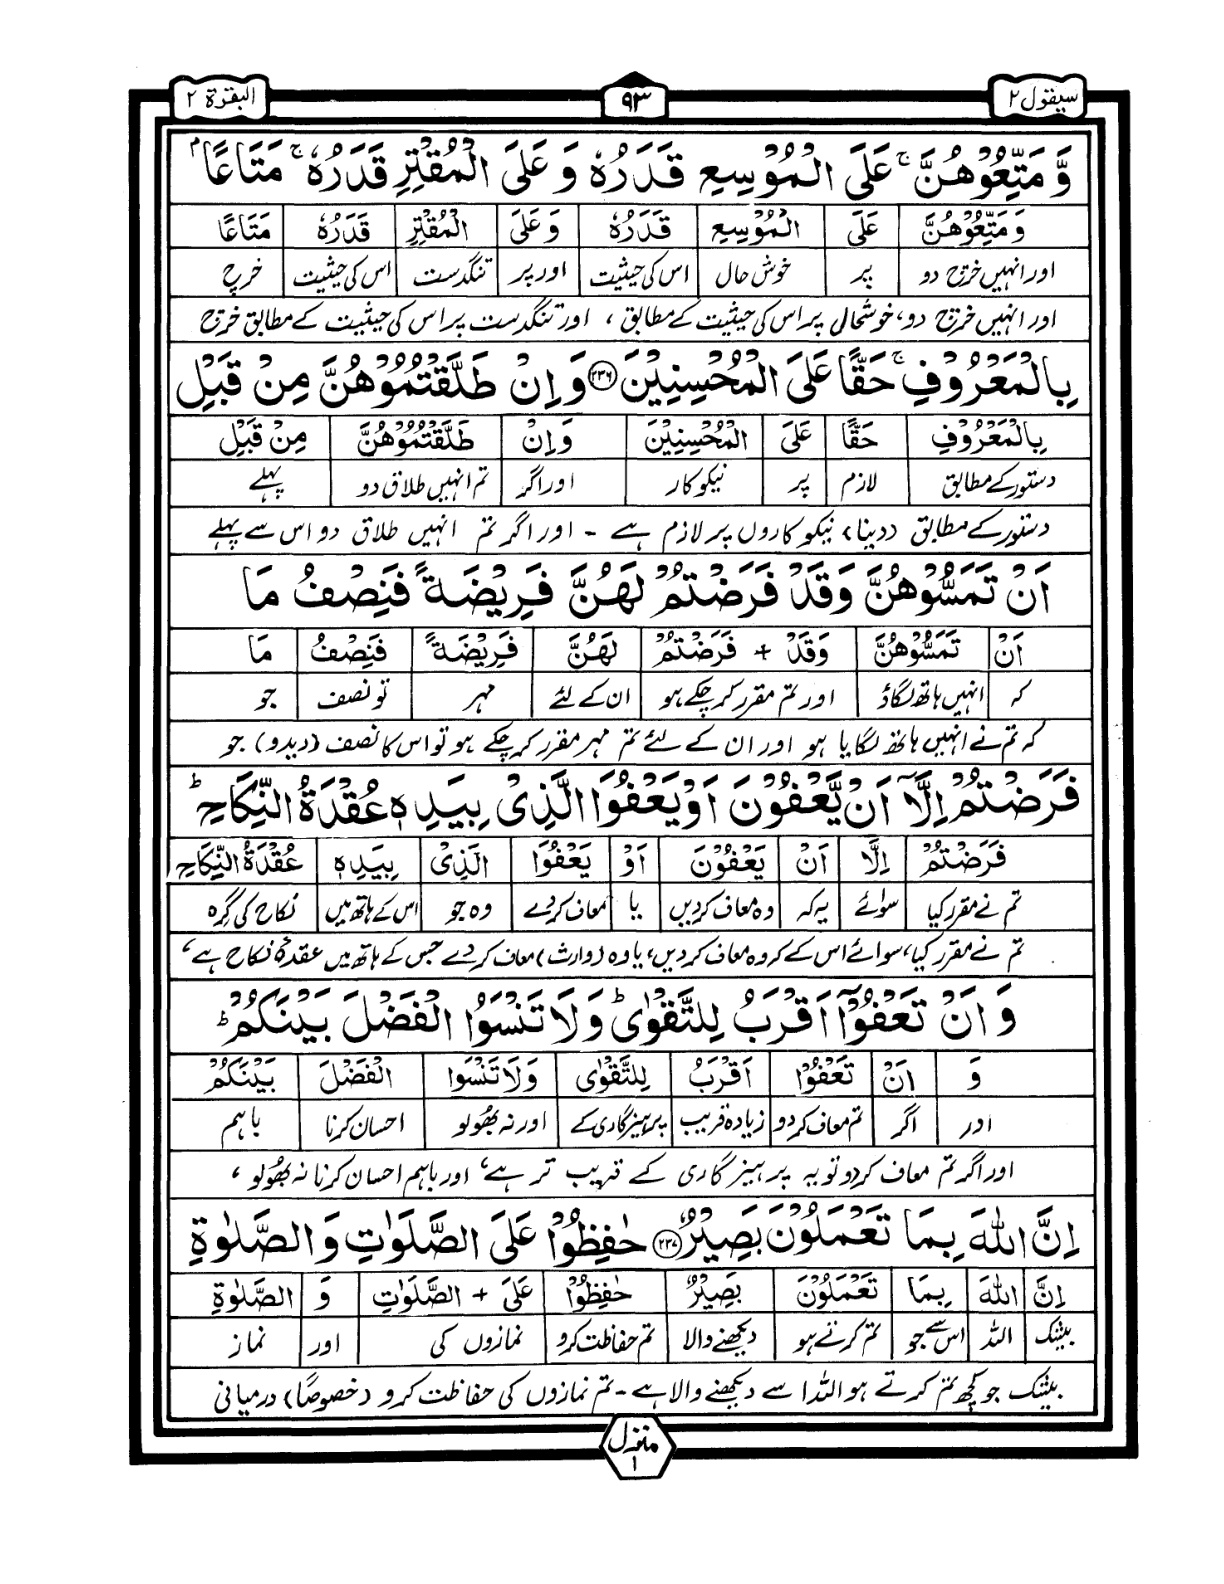 سیقول ۲
۹۳
البقرة ۲
وَّ مَتِّعُوْهُنَّ ۚ عَلَی الْمُوْسِعِ قَدَرُهٗ وَ عَلَی الْمُقْتِرِ قَدَرُهٗ ۚ مَتَاعًاۢ
وَ مَتِّعُوْهُنَّ عَلَی الْمُوْسِعِ قَدَرُهٗ وَ عَلَی الْمُقْتِرِ قَدَرُهٗ مَتَاعًا
اور انہیں خرچ دو پر خوش حال اس کی حیثیت اور پر تنگدست اس کی حیثیت خرچ
اور انہیں خرچ دو، خوشحال پر اس کی حیثیت کے مطابق ، اور تنگدست پر اس کی حیثیت کے مطابق خرچ
بِالْمَعْرُوْفِ ۚ حَقًّا عَلَی الْمُحْسِنِیْنَ ۲۳۶ وَ اِنْ طَلَّقْتُمُوْهُنَّ مِنْ قَبْلِ
بِالْمَعْرُوْفِ حَقًّا عَلَی الْمُحْسِنِیْنَ وَ اِنْ طَلَّقْتُمُوْهُنَّ مِنْ قَبْلِ
دستور کے مطابق لازم پر نیکوکار اور اگر تم انہیں طلاق دو پہلے
دستور کے مطابق (دینا) نیکو کاروں پر لازم ہے ۔ اور اگر تم انہیں طلاق دو اس سے پہلے
اَنْ تَمَسُّوْهُنَّ وَقَدْ فَرَضْتُمْ لَهُنَّ فَرِیْضَةً فَنِصْفُ مَا
اَنْ تَمَسُّوْهُنَّ وَقَدْ + فَرَضْتُمْ لَهُنَّ فَرِیْضَةً فَنِصْفُ مَا
کہ انہیں ہاتھ لگاؤ اور تم مقرر کر چکے ہو ان کے لئے مہر تو نصف جو
کہ تم نے انہیں ہاتھ لگایا ہو اور ان کے لئے تم مہر مقرر کر چکے ہو تو اس کا نصف (دیدو) جو
فَرَضْتُمْ اِلَّاۤ اَنْ یَّعْفُوْنَ اَوْ یَعْفُوَا الَّذِیْ بِیَدِهٖ عُقْدَةُ النِّكَاحِ ؕ
فَرَضْتُمْ اِلَّا اَنْ یَعْفُوْنَ اَوْ یَعْفُوَا الَّذِیْ بِیَدِهٖ عُقْدَةُ النِّكَاحِ
تم نے مقرر کیا سوائے یہ کہ وہ معاف کردیں یا معاف کردے وہ جو اس کے ہاتھ میں نکاح کی گرہ
تم نے مقرر کیا، سوائے اس کے کہ وہ معاف کردیں، یا وہ (وارث) معاف کردے جس کے ہاتھ میں عقدۂ نکاح ہے ،
وَ اَنْ تَعْفُوْۤا اَقْرَبُ لِلتَّقْوٰی ؕ وَ لَا تَنْسَوُا الْفَضْلَ بَیْنَكُمْ ؕ
وَ اَنْ تَعْفُوْا اَقْرَبُ لِلتَّقْوٰی وَ لَا تَنْسَوُا الْفَضْلَ بَیْنَكُمْ
اور اگر تم معاف کردو زیادہ قریب پرہیزگاری کے اور نہ بھولو احسان کرنا باہم
اور اگر تم معاف کردو تو یہ پرہیزگاری کے قریب تر ہے ، اور باہم احسان کرنا نہ بھولو ،
اِنَّ اللّٰهَ بِمَا تَعْمَلُوْنَ بَصِیْرٌ ۲۳۷ حٰفِظُوْا عَلَی الصَّلَوٰتِ وَ الصَّلٰوةِ
اِنَّ اللّٰهَ بِمَا تَعْمَلُوْنَ بَصِیْرٌ حٰفِظُوْا عَلَی + الصَّلَوٰتِ وَ الصَّلٰوةِ
بیشک اللہ اس سے جو تم کرتے ہو دیکھنے والا تم حفاظت کرو نمازوں کی اور نماز
بیشک جو کچھ تم کرتے ہو اللہ اسے دیکھنے والا ہے ۔ تم نمازوں کی حفاظت کرو (خصوصًا) درمیانی
منزل ۱